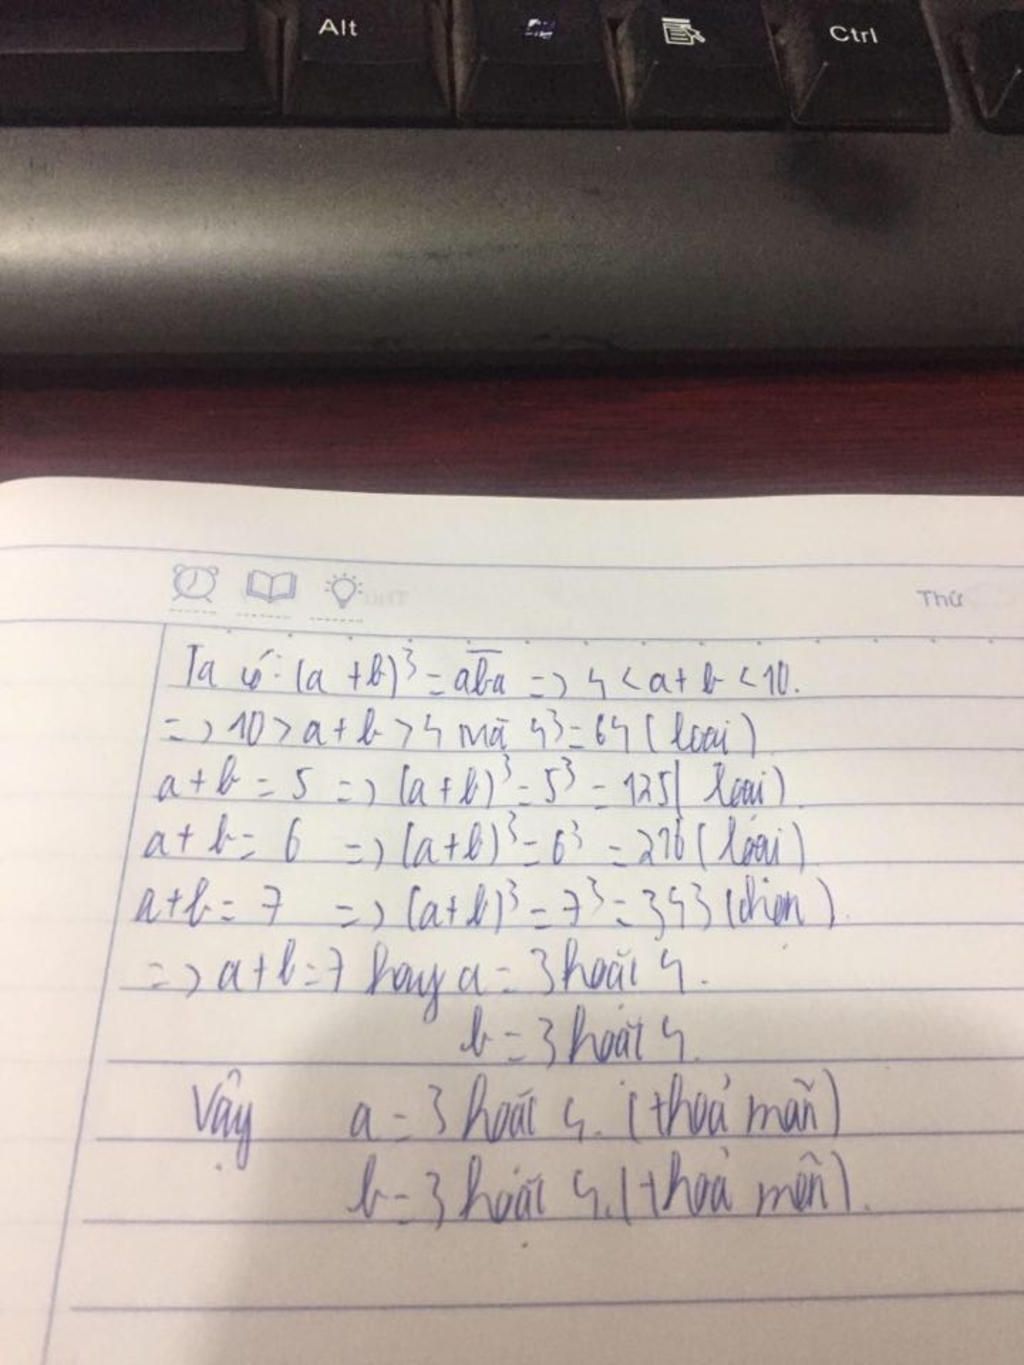 Alt
Ctrl
Thứ
Ta có: (a+b)³ = \overline{aba} => 4 < a+b < 10.
=> 10 > a+b > 4 mà 4³ = 64 (loại)
a+b = 5 => (a+b)³ = 5³ = 125 ( loại)
a+b = 6 => (a+b)³ = 6³ = 216 ( loại)
a+b = 7 => (a+b)³ = 7³ = 343 (chọn).
=> a+b = 7 hay a = 3 hoặc 4.
b = 3 hoặc 4.
Vậy a = 3 hoặc 4. (thoả mãn)
b = 3 hoặc 4. (thoả mãn).